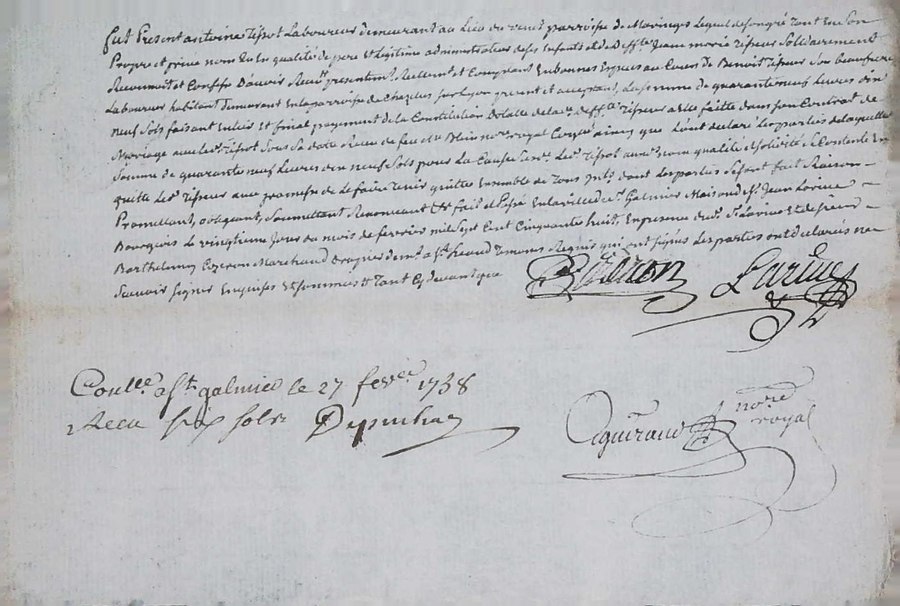 fut Present antoine Tissot Laboureur demeurant au Lieu du vent parroisse de Maringes Lequel de son gré tant en son
Propre et privé nom qu'en qualité de pere et Légitime administrateur de ses Enfants et de deffte Jeanne marie Tisseur Solidairement
Reconnoit et Confesse D'avoir Reçu presentement Réellement et Comptant En bonnes Espèces au Cours de Benoit Tisseur Son beau frere
Laboureur habitant demeurant En la parroisse de Chazelles sur Lyon présent et acceptant, La somme de quarante neuf Livres dix
neuf Sols faisant Entier Et final payement de la Constitution Dotalle de lade deffte Tisseur a Elle faitte dans son Contrat de
Mariage avec led. Tissot Sous Sa datte Reçu de feu Me Blein nore royal Comme ainsy que L'ont declaré Les parties de laquelle
Somme de quarante neuf Livres dix neuf Sols pour La Cause led. Tissot aud. nom qualité et solidité Se Contente En
quitte Led. Tisseur avec promesse de Le faire tenir quitte Ensemble de tous dont Les parties Se sont fait Raison
Promettant, obligeant, Soumettant Renonçant &c fait et Passé En la ville de St Galmier Maison de Sr. Jean Larine
Bourgeois Le vingtieme Jour du mois de fevrier mil Sept Cent Cinquante huit, En presence dud. Sr Larine Et de Sieur
Barthelemy Cozeron Marchand drognier demt a St heand Temoins Requis qui ont signés Les parties ont declarés ne
Scavoir signer Enquises Et Sommées Tant Cy devant que
Cozeron Larine
Conllé a St. galmier le 27 fevrier 1758
Reçu six sols Depuichay
nore
royal